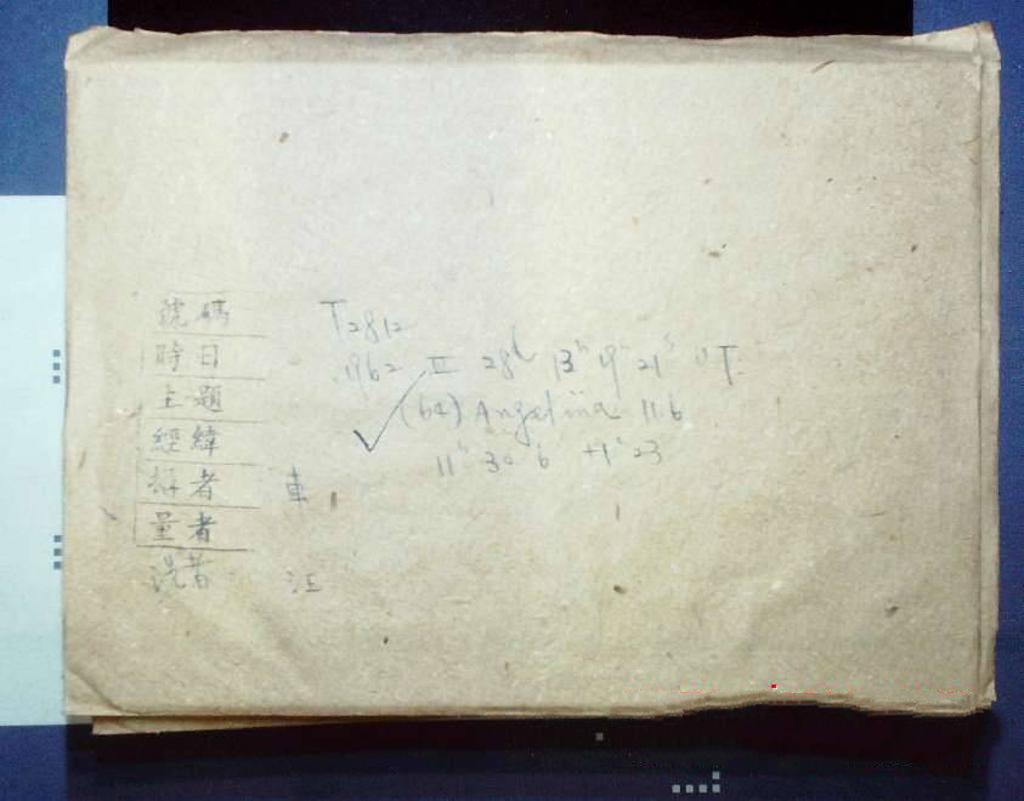 號碼 T2812
時日 1962 II 28d 13h 19m 21s UT.
主題 (64) Angelina 11.6
經緯 11h 30m 6 +1° 23
攝者 車
量者
洗者 汪